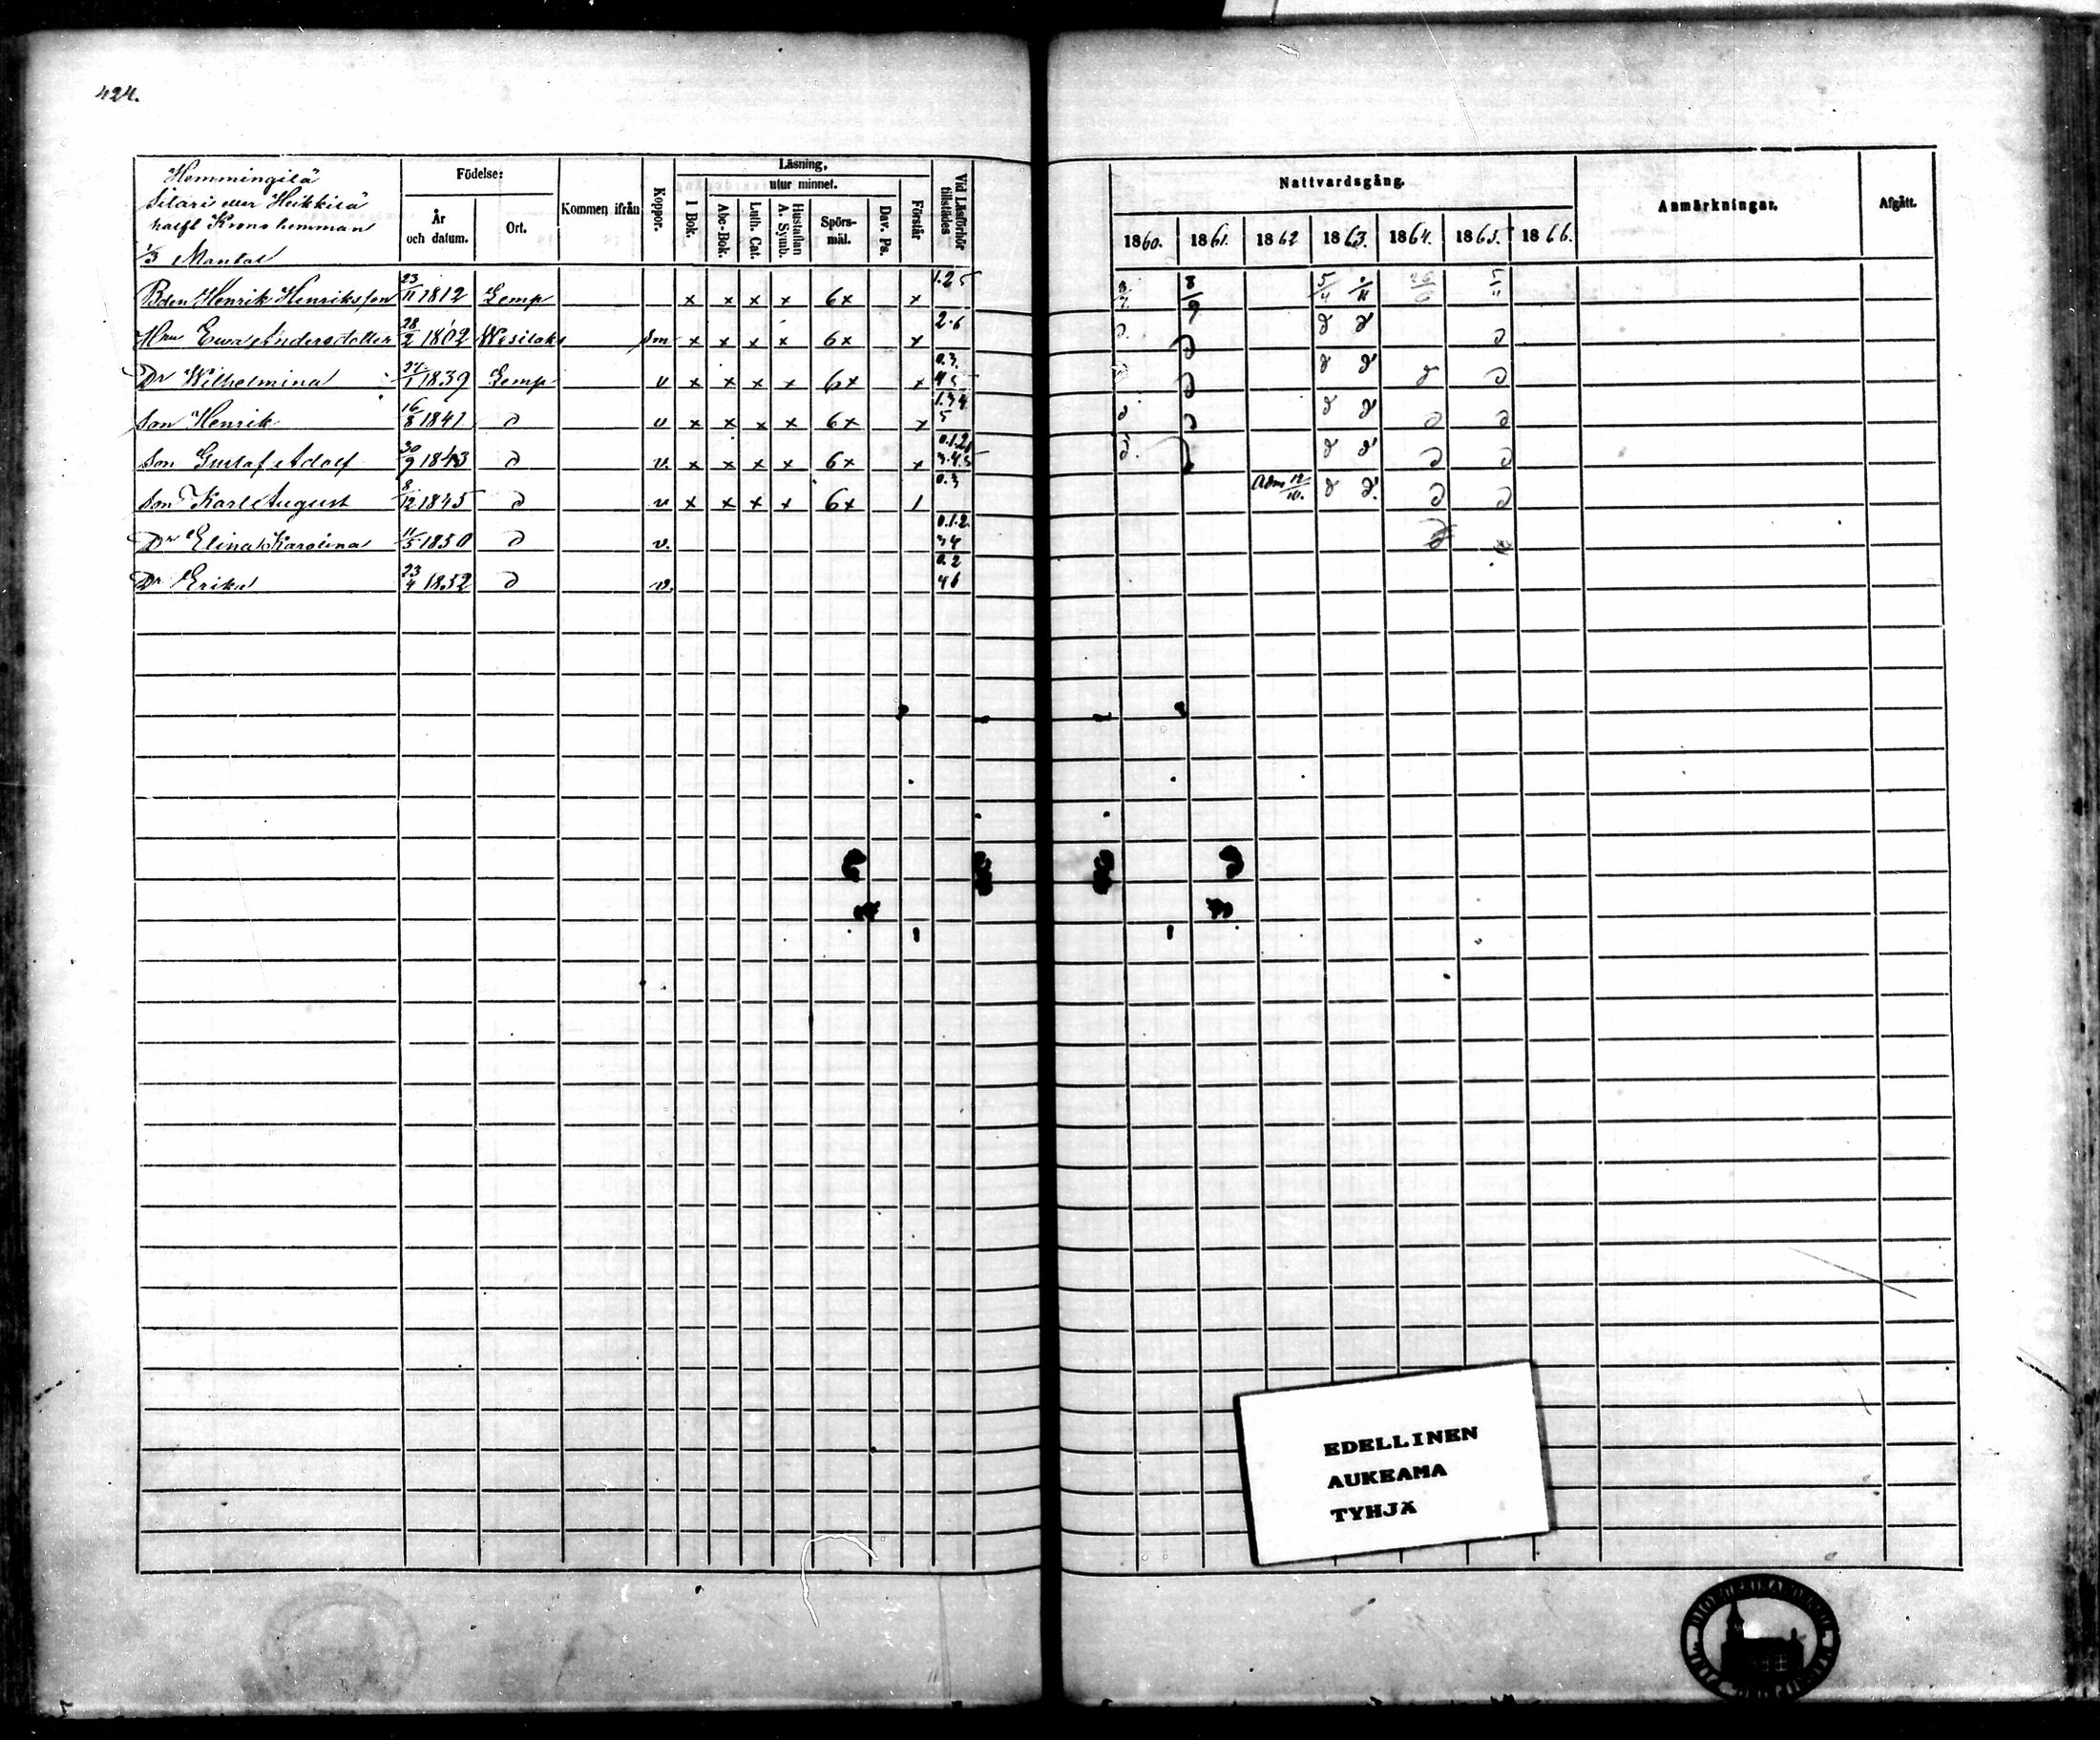 424.
Hemmingilä
Silari eller Heikkilä
halft Krono hemman
1/3 Mantal
Födelse:
År och datum.
Ort.
Kommen ifrån
Koppor.
Läsning,
utur minnet.
1 Bok.
Abc-Bok.
Luth. Cat.
Hustaflan A. Symb.
Spörs-mål.
Dav. Ps.
Förstår
Vid Läsförhör tillstädes
Nattvardsgång.
1860. 1861. 1862 1863. 1864. 1865. 1866.
Anmärkningar.
Afgått.
Bden Henrik Henriksson 23/11 1812 Lemp x x x x 6x x 1.2 5 8/9 5/4
Hru Ewa Andersdotter 28/2 1802 Wesilaks sm x x x x 6x x 2.6 d d d d d
Dr Wilhelmina 1839 Lemp v x x x x 6x x 0.3. 4 5 d d d d d
Son Henrik 16/8 1841 d v x x x x 6x x 1.3 4. 5 d d d d d d
Son Gustaf Adolf 30/9 1843 d v. x x x x 6x x 0.1.2. 3.4.5 d. d d d d d
Son Karl August 8/12 1845 d v x x x x 6x 1 0.3 Adm 12/10. d d. d d
Dr Elina Karolina 11/5 1850 d v. 0.1.2. 3 4
Dr Erika 23/4 1852 d v. 0.2 4 6
EDELLINEN
AUKEAMA
TYHJÄ